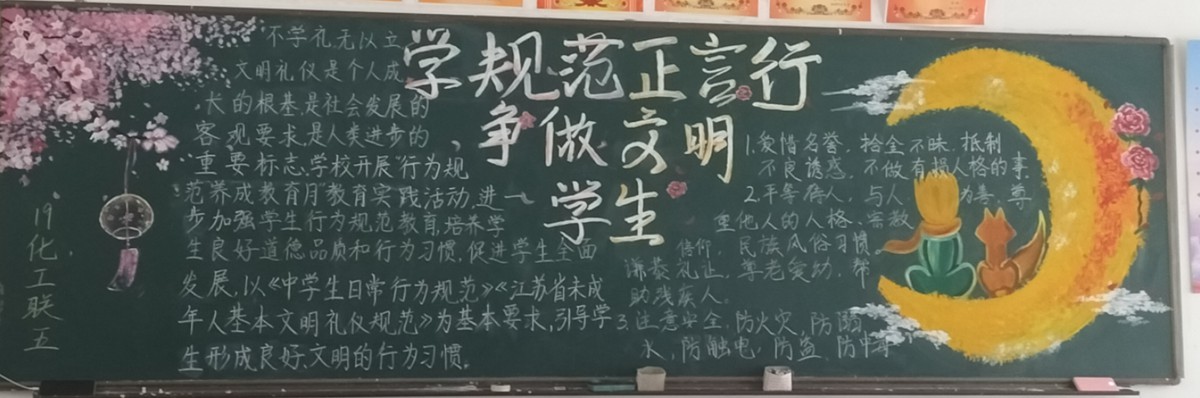 学规范正言行
争做文明
学生
不学礼,无以立
文明礼仪是个人成
长的根基,是社会发展的
客观要求,是人类进步的
重要标志,学校开展"行为规
范养成教育月"教育实践活动,进一
步加强学生行为规范教育,培养学
生良好道德品质和行为习惯,促进学生全面
发展,以《中学生日常行为规范》《江苏省未成
年人基本文明礼仪规范》为基本要求,引导学
生形成良好、文明的行为习惯。
1.爱惜名誉,拾金不昧,抵制
不良诱惑,不做有损人格的事.
2.平等待人,与人为善,尊
重他人的人格、宗教
信仰、民族风俗习惯
谦恭礼让,尊老爱幼,帮
助残疾人.
3.注意安全,防火灾,防溺
水,防触电,防盗,防中毒
19化工联五